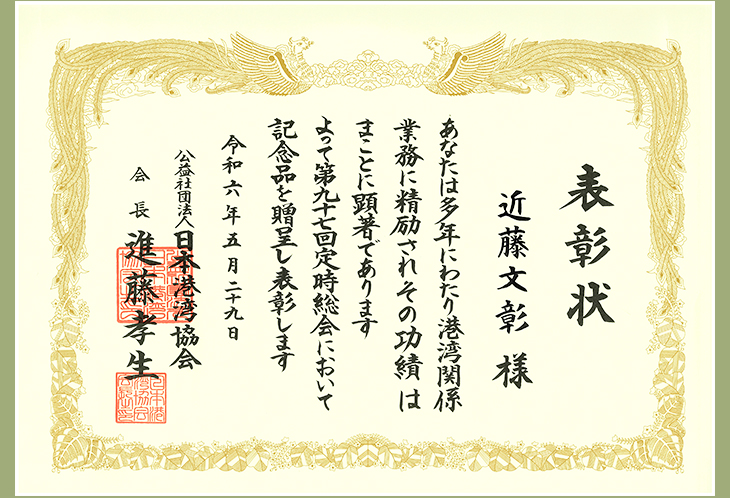 表彰状
近藤文彰様
あなたは多年にわたり港湾関係
業務に精励されその功績は
まことに顕著であります
よって第九十七回定時総会において
記念品を贈呈し表彰します
令和六年五月二十九日
公益社団法人日本港湾協会
会長進藤孝生